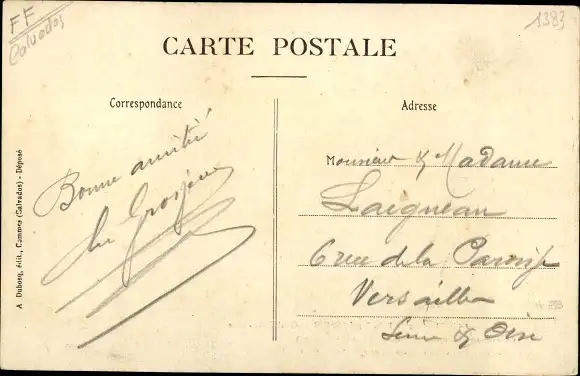 FF
Calvados
1383
CARTE POSTALE
Correspondance
Adresse
Bonne amitié
Monsieur & Madame
Lacqneau
6 rue de la Paroisse
Versailles
Seine & Oise
A Dubosq, édit., Cammes (Calvados) - Déposé